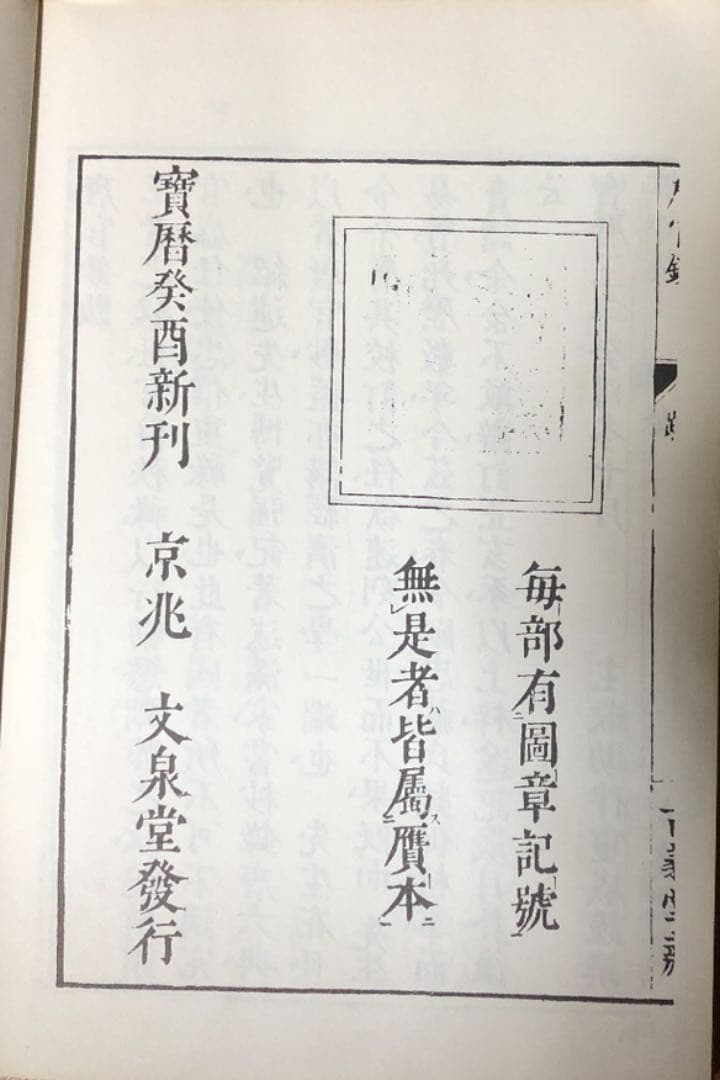 每部有圖章記號
無是者皆屬贋本
寶曆癸酉新刊 京兆 文泉堂發行